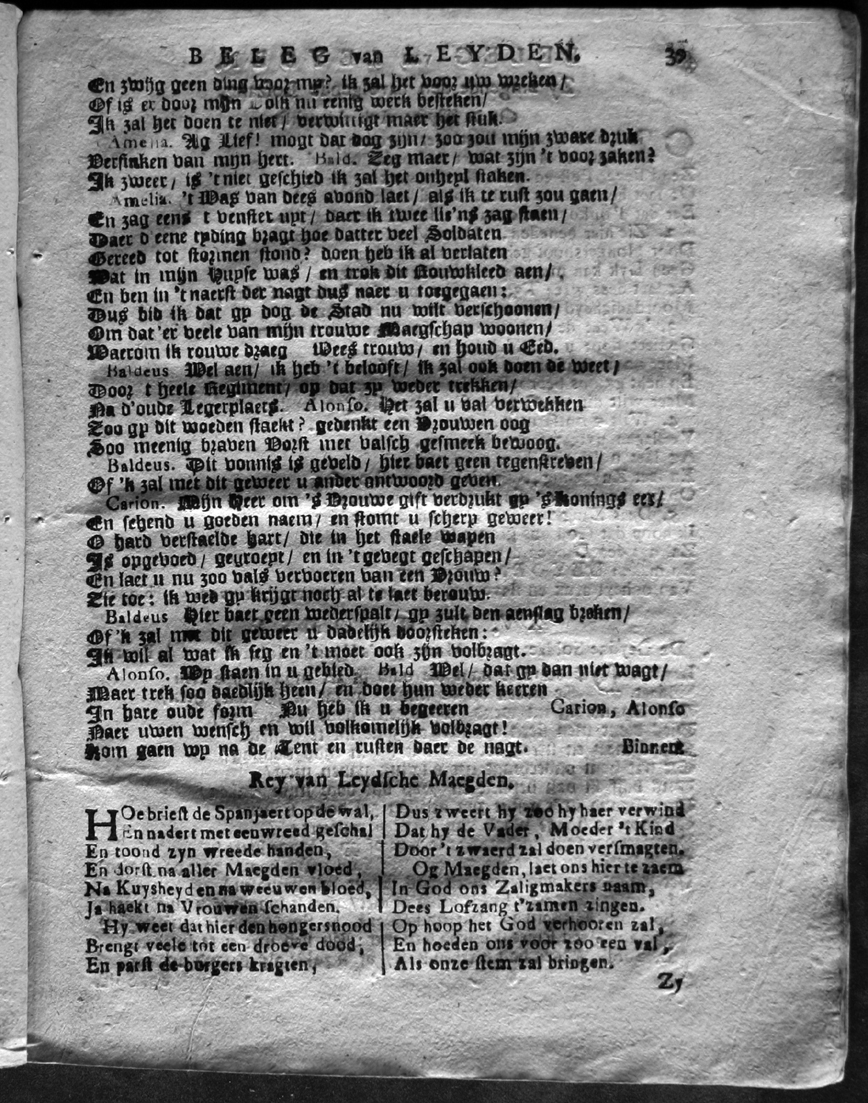 BELEG van LEYDEN. 39
En zwijg geen ding voor my? ik zal het voor uw wreken/
Of is er door mijn olk nu eenig werk besteken/
Ik zal het doen te niet/ verwittigt maer het stuk.
Amelia. Ag Lief! mogt dat dog zijn/ zoo zou mijn zware druk
Verslaken van mijn hert. Bald. Zeg maer/ wat zijn 't voor zaken?
Ik zweer/ is 't niet geschied ik zal het onheyl staken.
Amelia. 't Was van dees avond laet/ als ik te rust zou gaen/
En zag eens 't venster uyt/ daer ik twee lie'ns zag staen/
Daer d'eene tyding bragt hoe datter veel Soldaten
Gereed tot stormen stond? doen heb ik al verlaten
Wat in mijn Huyse was/ en trok dit Rouwkleed aen/
En ben in 't naerst der nagt dus naer u toegegaen:
Dus bid ik dat gy dog de Stad nu wilt verschoonen/
Om dat'er veele van mijn trouwe Maegschap woonen/
Waerom ik rouwe draeg Wees trouw/ en houd u Eed.
Baldeus Wel aen/ ik heb 't belooft/ ik zal ook doen de weet/
Door 't heele Regiment/ op dat zy weder trekken/
Na d'oude Legerplaets. Alonso. Het zal u val verwekken
Zoo gy dit woeden staekt? gedenkt een Vrouwen oog
Soo meenig braven Vorst met valsch gesmeek bewoog.
Baldeus. Dit vonnis is geveld/ hier baet geen tegenstreven/
Of 'k zal met dit geweer u ander antwoord geven.
Carion. Mijn Heer om 's Vrouwe gift verdrukt gy 's Konings eer/
En schend u goeden naem/ en stomt u scherp geweer!
O hard verstaelde hart/ die in het staele wapen
Is opgevoed/ geyroept/ en in 't gevegt geschapen/
En laet u nu zoo vals vervoeren van een Vrouw?
Zie toe: ik wed gy krijgt noch al te laet berouw.
Baldeus Hier baet geen wederspalt/ gy zult den aenslag breken/
Of 'k zal met dit geweer u dadelijk doorsteken:
Ik wil al wat ik seg en 't moet ook zijn volbragt.
Alonso. Wy staen in u gebied. Bald Wel/ dat gy dan niet wagt/
Maer trek soo daedlijk heen/ en doet hun weder keeren
In hare oude form Nu heb ik u begeeren Carion, Alonso
Naer uwen wensch en wil volkomelijk volbragt!
Kom gaen wy na de Tent en rusten daer de nagt. Binnen
Rey van Leydsche Maegden.
HOe briest de Spanjaert op de wal,
En nadert met een wreed geschal
En toond zyn wreede handen,
En dorst na aller Maegden vloed,
Na Kuysheyd en na weeuwen bloed,
Ja haekt na Vrouwen schanden.
Hy weet dat hier den hongersnood
Brengt veele tot een droeve dood,
En parst de burgers kragten,
Dus zweert hy zoo hy haer verwind
Dat hy de Vader, Moeder 't Kind
Door 't zwaerd zal doen versmagten.
Og Maegden, laet ons hier te zaem
In God ons Zaligmakers naam,
Dees Lofzang t'zamen zingen.
Op hoop het God verhooren zal,
En hoeden ons voor zoo een val,
Als onze stem zal bringen.
Zy